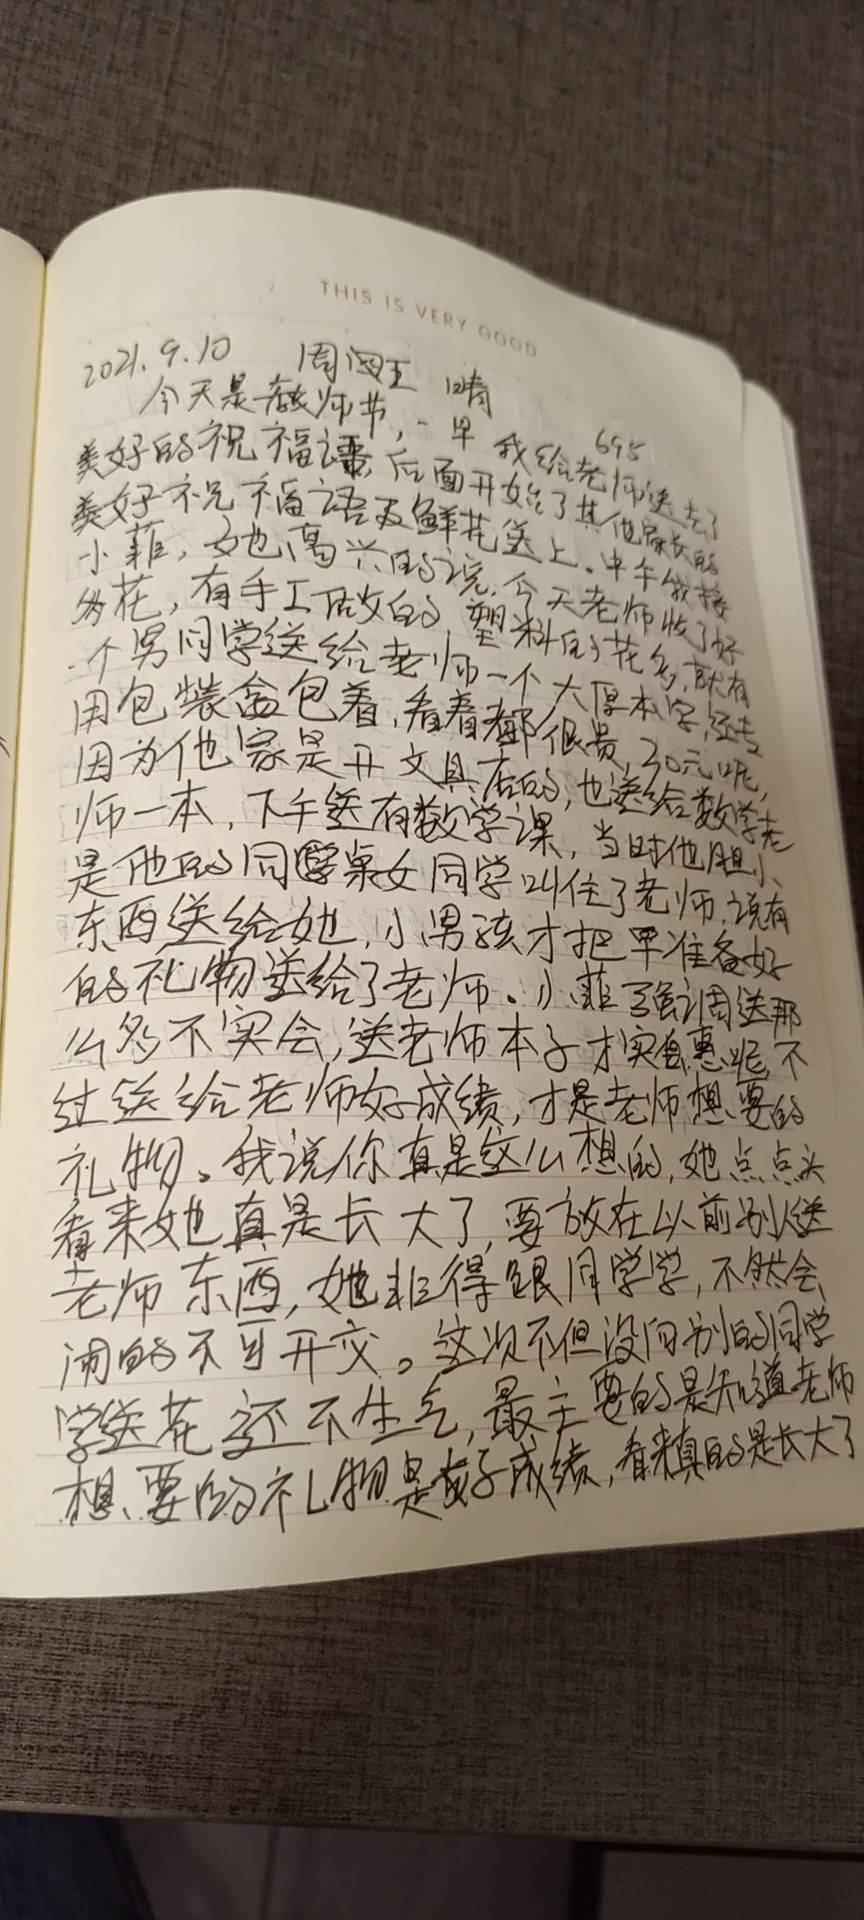 THIS IS VERY GOOD
2021.9.10 周五 晴
695
今天是教师节,一早我给老师送去了
美好的祝福语,后面开始了其他家长的
美好祝福语及鲜花送上。中午我接
小菲,她高兴的说,今天老师收了好
多花,有手工做的塑料的花多,就有
一个男同学送给老师一个大厚本字,还专
用包装盒包着,看着都很贵,30元呢,
因为他家是开文具店的,也送给数学老
师一本,下午送有数学课,当时他胆小,
是他的同学桌女同学叫住了老师,说有
东西送给她,小男孩才把早准备好
的礼物送给了老师。小菲强调送那
么多不实会,送老师本子才实惠呢,不
过送给老师好成绩,才是老师想要的
礼物。我说你真是这么想的,她点点头
看来她真是长大了,要放在以前别人送
老师东西,她非得跟同学学,不然会
闹的不可开交。这次不但没向别的同学
学送花还不生气,最主要的是知道老师
想要的礼物是好成绩,看来真的是长大了